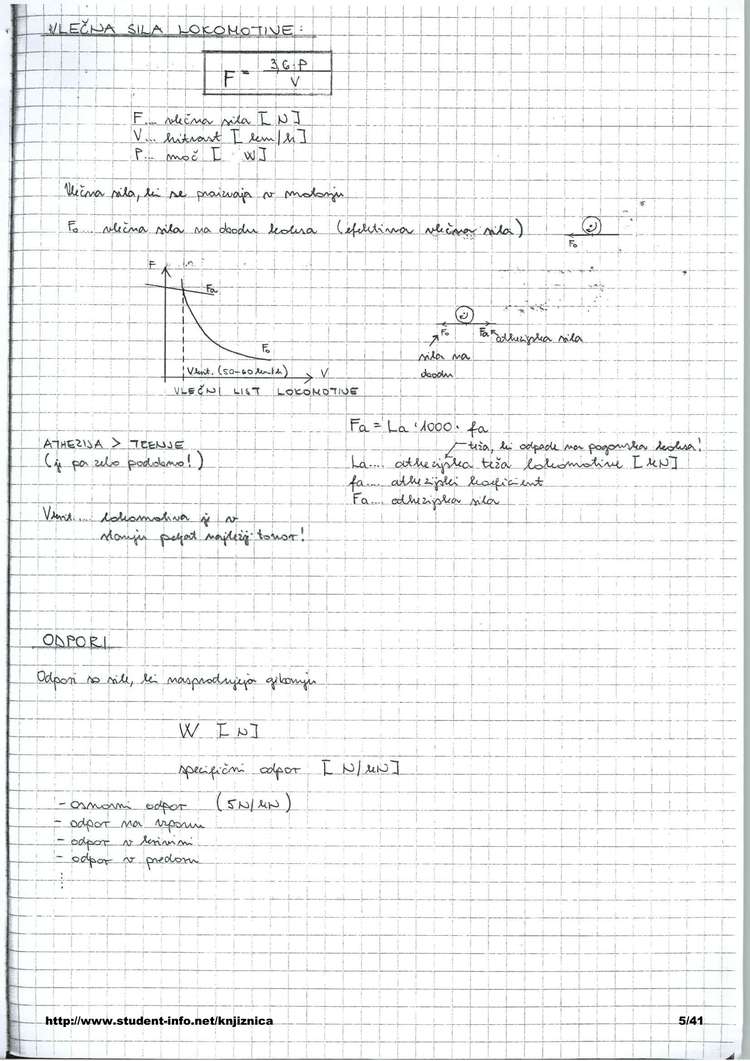 VLEČNA SILA LOKOMOTIVE:
F = 3,6·P / V
F... vlečna sila [N]
V... hitrost [km/h]
P... moč [ W]
Vlečna sila, ki se proizvaja v motorju
Fo... vlečna sila na obodu kolesa (efektivna vlečna sila)
Fo
F
Fa
Fo
Vkrit. (50-60 km/h)
V
VLEČNI LIST LOKOMOTIVE
Fo
Fa
adhezijska sila
sila na
obodu
Fa = La · 1000 · fa
teža, ki odpade na pogonska kolesa!
ATHEZIJA > TRENJE
(je pa zelo podobno!)
La.... athezijska teža lokomotive [kN]
fa.... athezijski koeficient
Fa.... adhezijska sila
Vkrit.... lokomotiva je v
stanju peljat najtežji tovor!
ODPORI
Odpori so sile, ki nasprotujejo gibanju
W [N]
specifični odpor [N/kN]
- osnovni odpor (5N/kN)
- odpor na vzponu
- odpor v krivini
- odpor v predoru
http://www.student-info.net/knjiznica
5/41